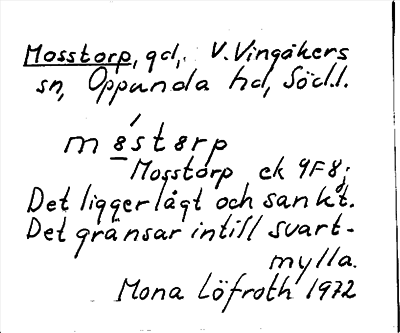 Mosstorp, gd, V. Vingåkers
sn, Oppunda hd, Södl.
m８́st８rp
Mosstorp ek 9F8j
Det ligger lågt och sankt.
Det gränsar intill svart-
mylla.
Mona Löfroth 1972